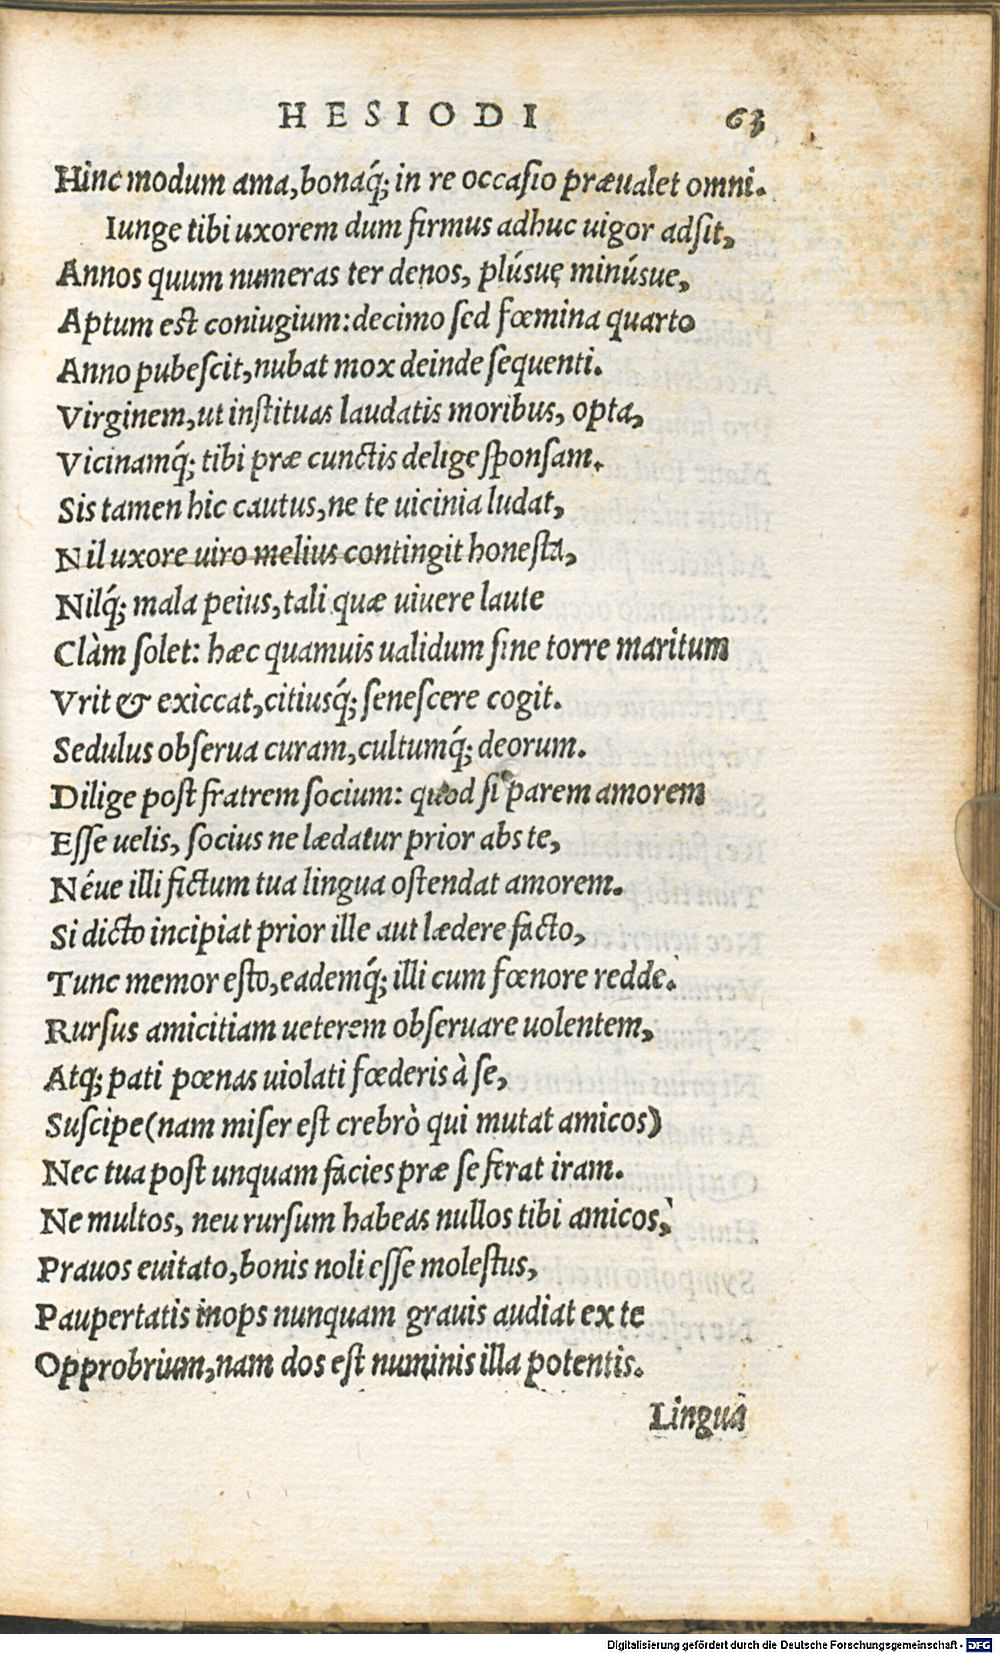 HESIODI 63
Hinc modum ama, bonaq́; in re occasio præualet omni.
Iunge tibi uxorem dum firmus adhuc uigor adsit,
Annos quum numeras ter denos, plúsuę minúsue,
Aptum est coniugium: decimo sed fœmina quarto
Anno pubescit, nubat mox deinde sequenti.
Virginem, ut instituas laudatis moribus, opta,
Vicinamq́; tibi præ cunctis delige sponsam.
Sis tamen hic cautus, ne te uicinia ludat,
Nil uxore uiro melius contingit honesta,
Nilq́; mala peius, tali quæ uiuere laute
Clàm solet: hæc quamuis ualidum sine torre maritum
Vrit & exiccat, citiusq́; senescere cogit.
Sedulus obserua curam, cultumq́; deorum.
Dilige post fratrem socium: quod si parem amorem
Esse uelis, socius ne lædatur prior abs te,
Néue illi fictum tua lingua ostendat amorem.
Si dicto incipiat prior ille aut lædere facto,
Tunc memor esto, eademq́; illi cum fœnore redde.
Rursus amicitiam ueterem obseruare uolentem,
Atq; pati pœnas uiolati fœderis à se,
Suscipe (nam miser est crebrò qui mutat amicos)
Nec tua post unquam facies præ se ferat iram.
Ne multos, neu rursum habeas nullos tibi amicos,
Prauos euitato, bonis noli esse molestus,
Paupertatis inops nunquam grauis audiat ex te
Opprobrium, nam dos est numinis illa potentis.
Lingua
Digitalisierung gefördert durch die Deutsche Forschungsgemeinschaft - DFG